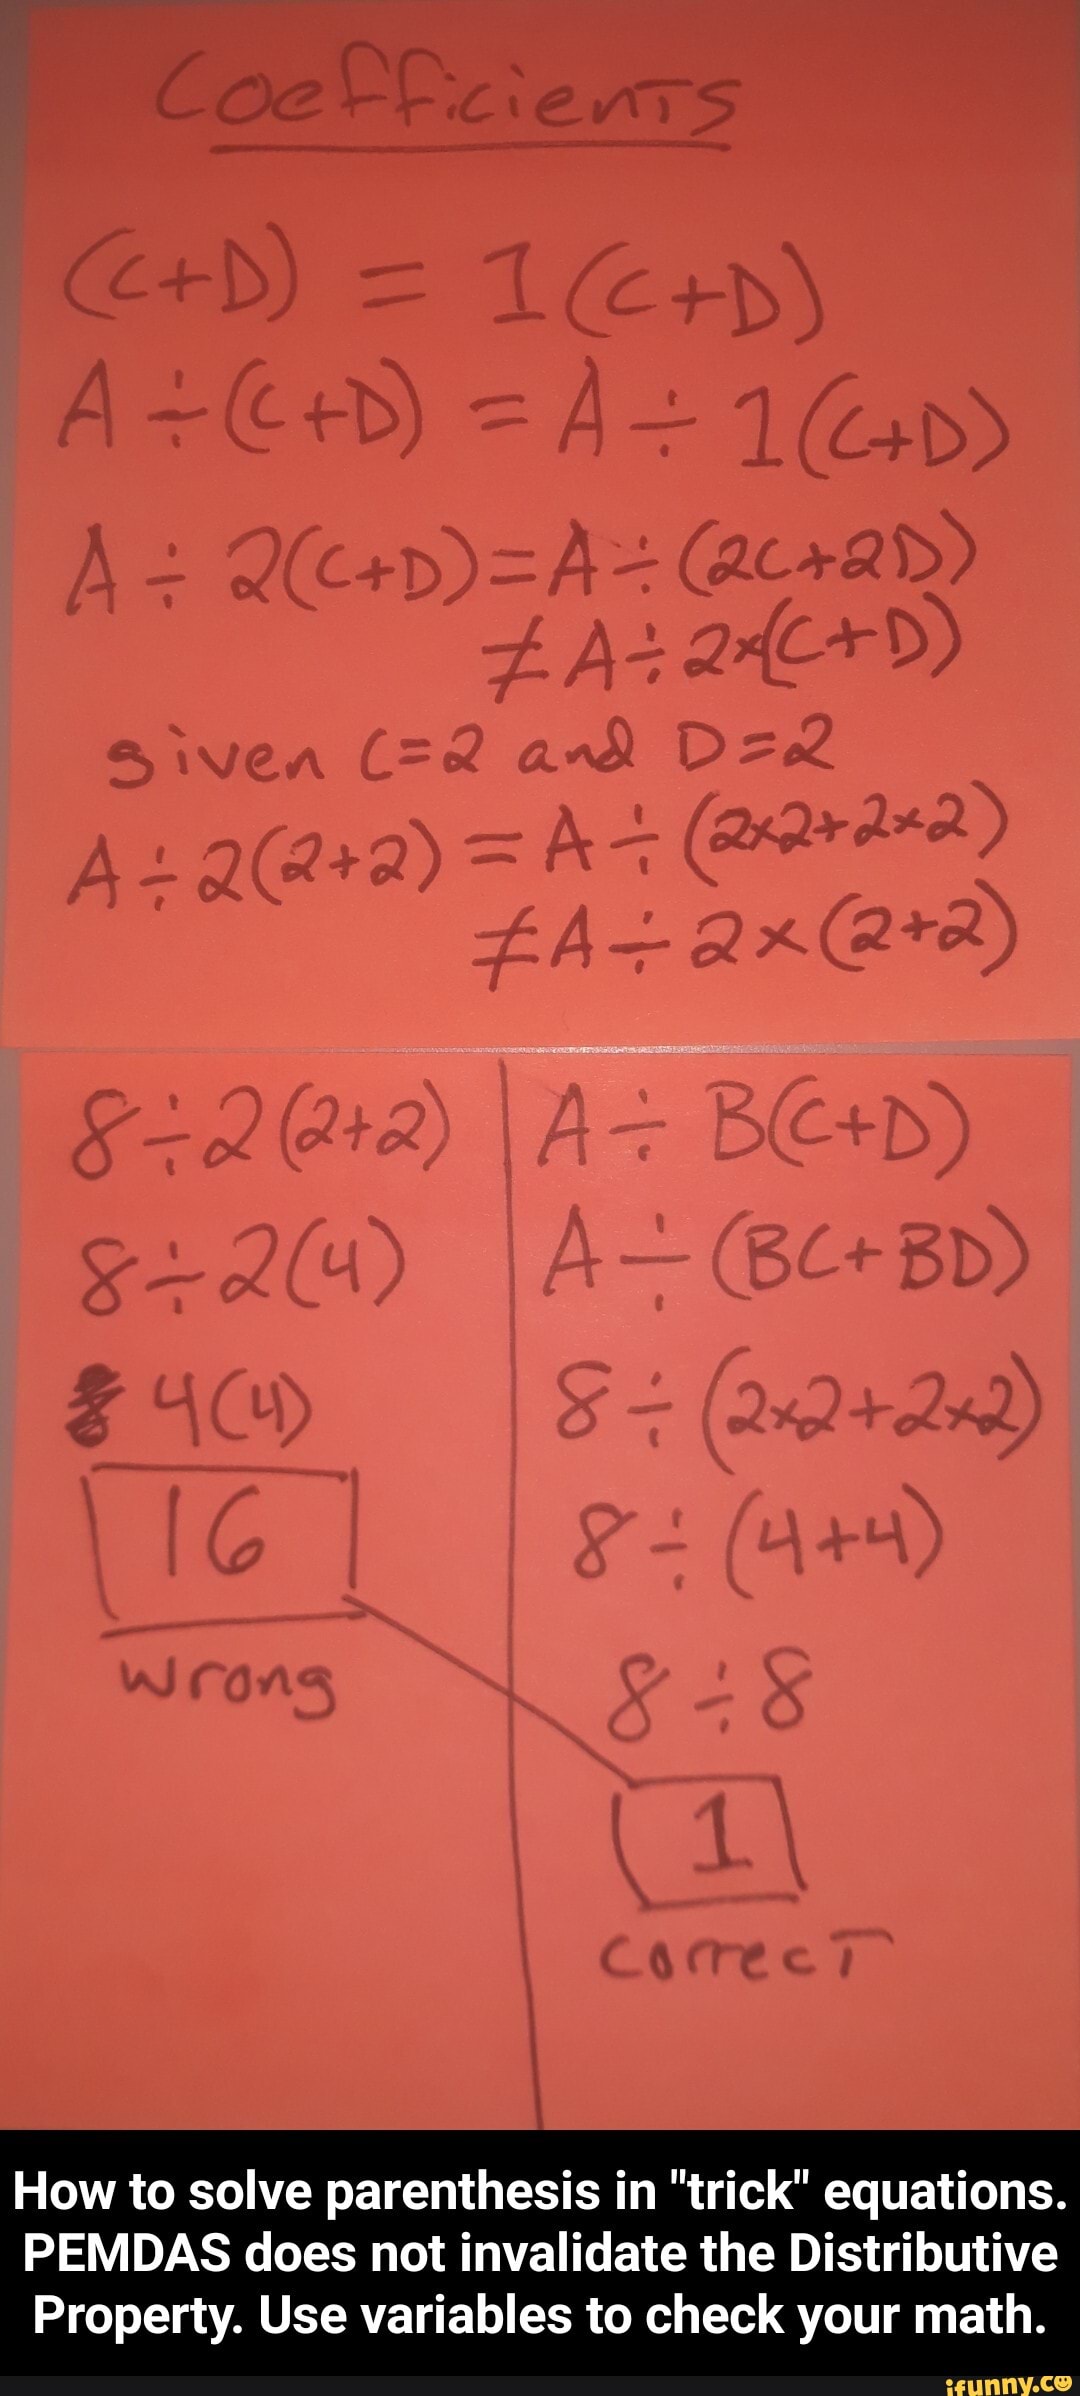 Coefficients
(C+D) = 1(C+D)
A÷(C+D) = A÷1(C+D)
A÷2(C+D)=A÷(2C+2D)
≠A÷2×(C+D)
given C=2 and D=2
A÷2(2+2)=A÷(2×2+2×2)
≠A÷2×(2+2)
8÷2(2+2)
8÷2(4)
4(4)
16
Wrong
A÷B(C+D)
A÷(BC+BD)
8÷(2×2+2×2)
8÷(4+4)
8÷8
1
Correct
How to solve parenthesis in "trick" equations.
PEMDAS does not invalidate the Distributive
Property. Use variables to check your math.
ifunny.co